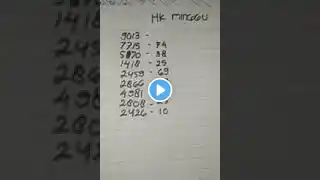 HK MINGGU
9013 -
7715 - 74
5870 - 38
1418 - 25
2459 - 69
2866
4981
2808 -
2426 - 10